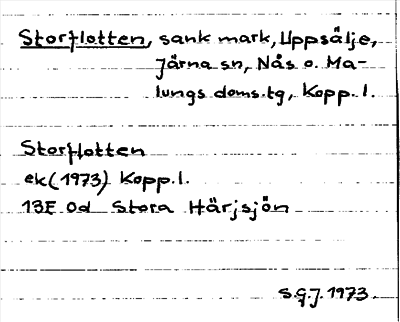 Storflotten, sank mark, Uppsälje,
Järna sn, Nås o. Ma-
lungs doms.tg, Kopp. l.
Storflotten
ek (1973) Kopp. l.
13E 0d Stora Härjsjön
S.G.J. 1973.